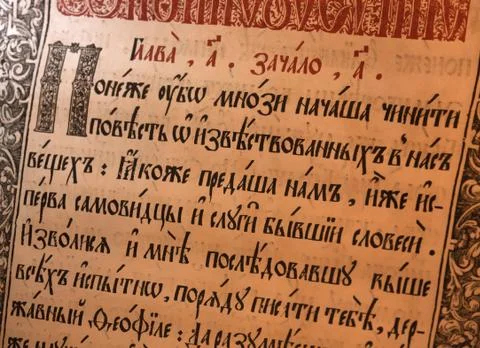 Глава̀, а҃. Зача́ло, а҃.
Поне́же ᲂу҆́бѡ мно́зи нача́ша чини́ти
по́вѣсть ѡ҆ и҆звѣ́ствованныхъ в̾ на́съ
ве́щехъ : Ꙗ҆́коже преда́ша на́мъ , и҆̀же и҆с-
пе́рва самови́дцы и҆ слꙋги̑ бы́вшїи словесѝ .
И҆зво́лисѧ и҆ мнѣ̀ послѣ́довавшꙋ вы́ше
всѣ̑хъ и҆спы́тнѡ , порѧ́дꙋ писа́ти тебѣ̀ , дер-
жа́вный Ѳео́фїле : Да разꙋмѣ́еши